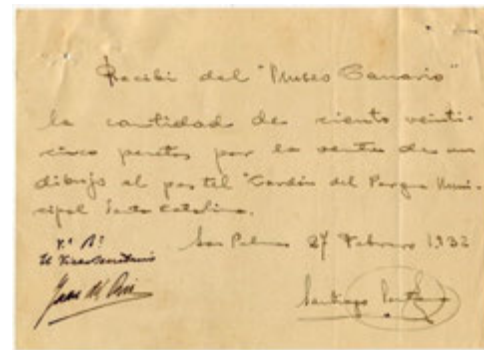 Recibí del "Museo Canario"
la cantidad de ciento veinti-
cinco pesetas por la venta de un
dibujo al pastel "Jardín del Parque Muni-
cipal Santa Catalina.
Las Palmas 27 Febrero 1933
Vº Bº
El Vicesecretario
Santiago Santana